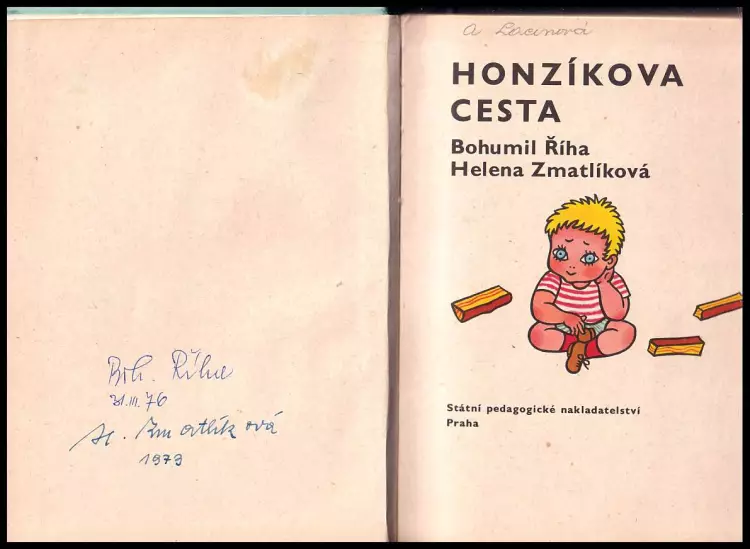 Boh. Říha
31.III.76
H. Zmatlíková
1979
A Lacinová
HONZÍKOVA
CESTA
Bohumil Říha
Helena Zmatlíková
Státní pedagogické nakladatelství
Praha